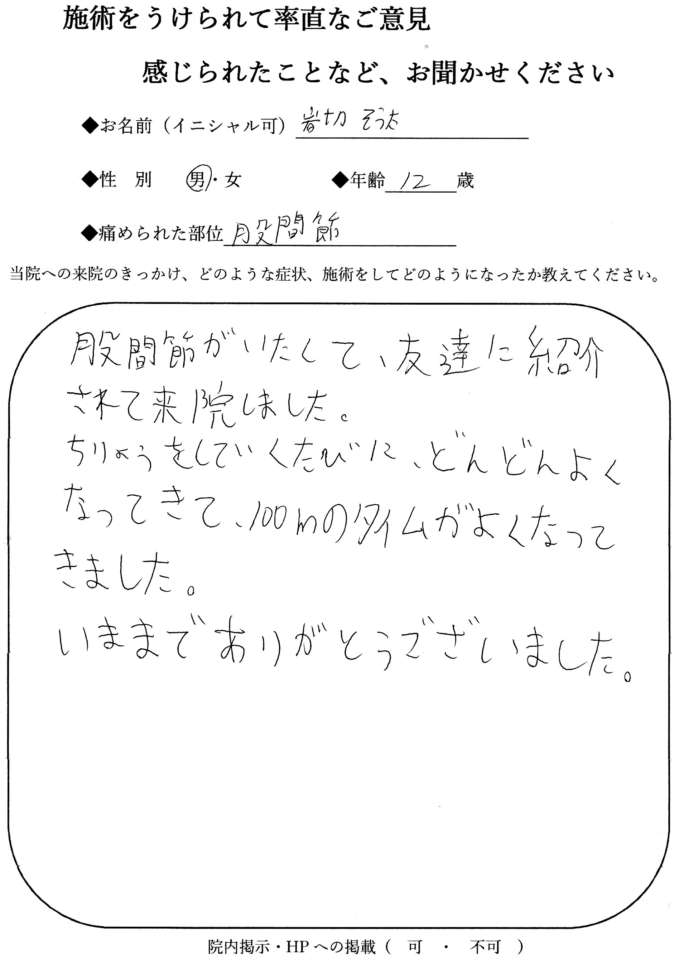 施術をうけられて率直なご意見
感じられたことなど、お聞かせください
◆お名前（イニシャル可）岩切 そう太
◆性 別 男・女 ◆年齢 12 歳
◆痛められた部位 股間節
当院への来院のきっかけ、どのような症状、施術をしてどのようになったか教えてください。
股間節がいたくて、友達に紹介
されて来院しました。
ちりょうをしていくたびに、どんどんよく
なってきて、100mのタイムがよくなって
きました。
いままでありがとうございました。
院内掲示・HPへの掲載（ 可 ・ 不可 ）